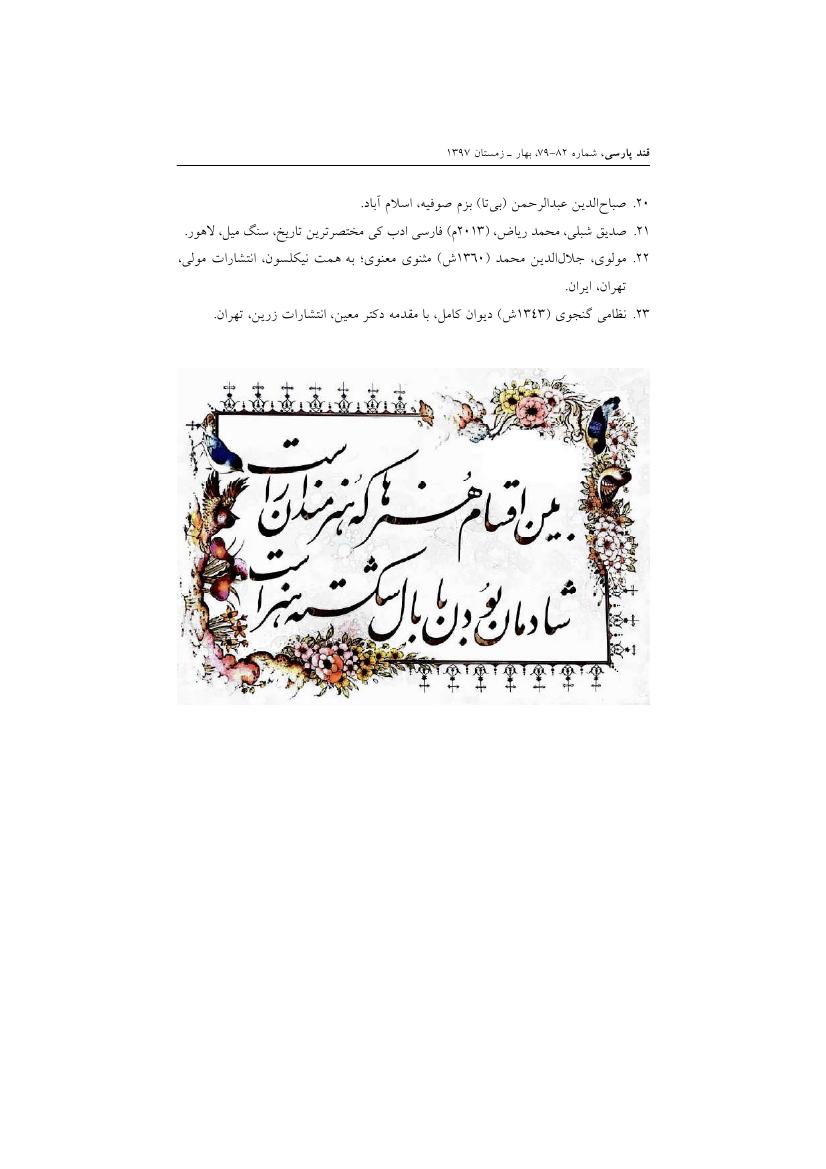 قند پارسی، شماره ۸۲-۷۹، بهار ـ زمستان ۱۳۹۷
۲۰. صباح‌الدین عبدالرحمن (بی‌تا) بزم صوفیه، اسلام آباد.
۲۱. صدیق شبلی، محمد ریاض، (۲۰۱۳م) فارسی ادب کی مختصرترین تاریخ، سنگ میل، لاهور.
۲۲. مولوی، جلال‌الدین محمد (۱۳۶۰ش) مثنوی معنوی؛ به همت نیکلسون، انتشارات مولی،
تهران، ایران.
۲۳. نظامی گنجوی (۱۳٤۳ش) دیوان کامل، با مقدمه دکتر معین، انتشارات زرین، تهران.
بین اقسام هُنرها که هُنرمندان راست
شادمان بوُدن با بال شکسته هنر است